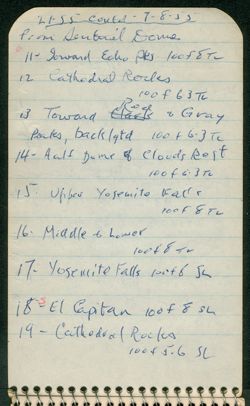 21-55 contd - 7-8-55
From Sentinel Dome
11- Toward Echo Pks 100 f 8 TL
12 Cathedral Rocks
100 f 6.3 TL
13 Toward Red & Gray
Peaks, backlgtd 100 f 6.3 TL
14- Half Dome & Clouds Rest
100 f 6.3 TL
15- Upper Yosemite Falls
100 f 8 TL
16- Middle & Lower
100 f 8 TL
17- Yosemite Falls 100 f 8 SL
18- El Capitan 100 f 8 SL
19- Cathedral Rocks
100 f 5.6 SL